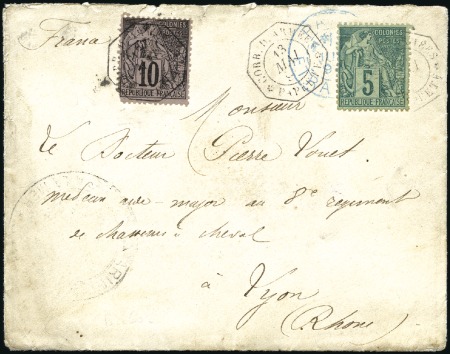 France
COLONIES
POSTES
10
RÉPUBLIQUE FRANÇAISE
CORR. D. ARMÉES
COLONIES
POSTES
5
RÉPUBLIQUE FRANÇAISE
Monsieur
Le Docteur Pierre
medecin aide-major au 8e regiment
de chasseurs à cheval
à Lyon
(Rhone)